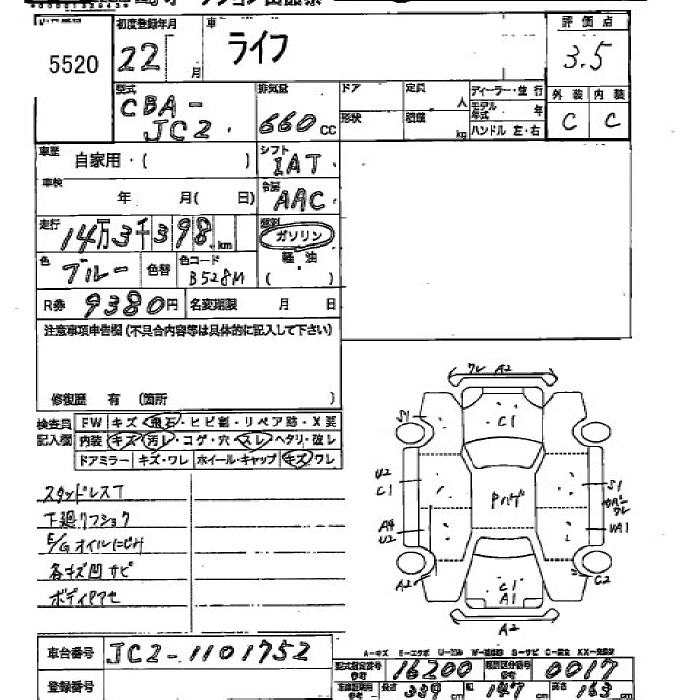 5520
初度登録年月
22 月
車
ライフ
評価点
3.5
型式
CBA-
JC2
排気量
660 cc
ドア
形状
定員 人
積載 kg
ディーラー・並行
モデル年式 年
ハンドル 左・右
外装 内装
C C
車歴 自家用・( )
シフト
IAT
車検 年 月( 日)
冷房
AAC
走行
14万3千398 km
燃料
ガソリン
軽油
( )
色 ブルー 色替
色コード B528M
R券 9380円 名変期限 月 日
注意事項申告欄(不具合内容等は具体的に記入して下さい)
修復歴 有 (箇所 )
検査員記入欄
FW キズ・飛石・ヒビ割・リペア跡・X要
内装 キズ・汚レ・コゲ・穴・スレ・ヘタリ・破レ
ドアミラー キズ・ワレ ホイール・キャップ キズ・ワレ
スタッドレスT
下廻リフショク
E/Gオイルにじみ
各キズ凹サビ
ボディヤケ
ワレ A2
S1
C1
U2
C1
Pハゲ
S1
ワレ
A4
U2
UA1
A2
C1
A1
C2
A2
車台番号 JC2-1101752
登録番号
型式指定番号 16200
類別区分番号 0017
長さ 339 cm 幅 147 cm 高さ 163 cm